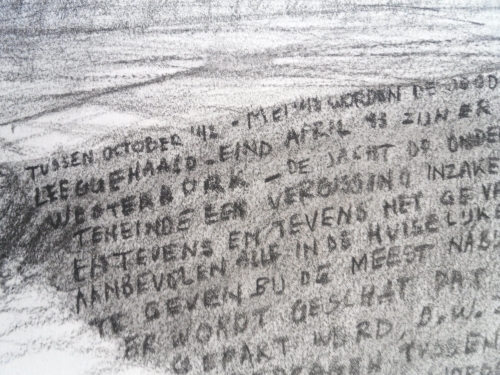 TUSSEN OCTOBER '42 - MEI '43 WORDEN DE JOOD
LEEGGEHAALD - EIND APRIL '43 ZIJN ER
WESTERBORK - DE JACHT OP ONDE
TENEINDE EEN VERGISSING INZAKE
EN TEVENS EN TEVENS HET GEVE
AANBEVOLEN ALLE IN DE HUISELIJK
TE GEVEN BIJ DE MEEST NABI
ER WORDT GESCHAT DAT
GEPAKT WERD, D.W.
TUSSEN